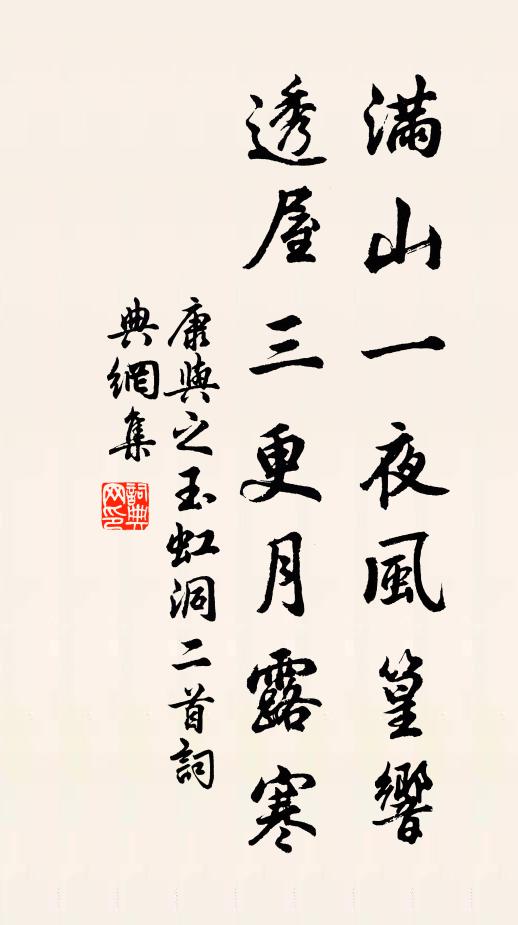 滿山一夜風篁響
透屋三更月露寒
康與之玉虹洞二首詞
典網集
詞典
网印